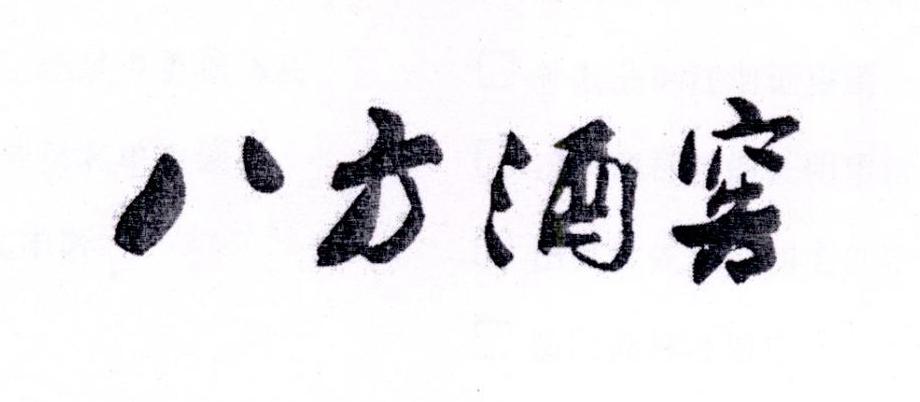 八方酒窖